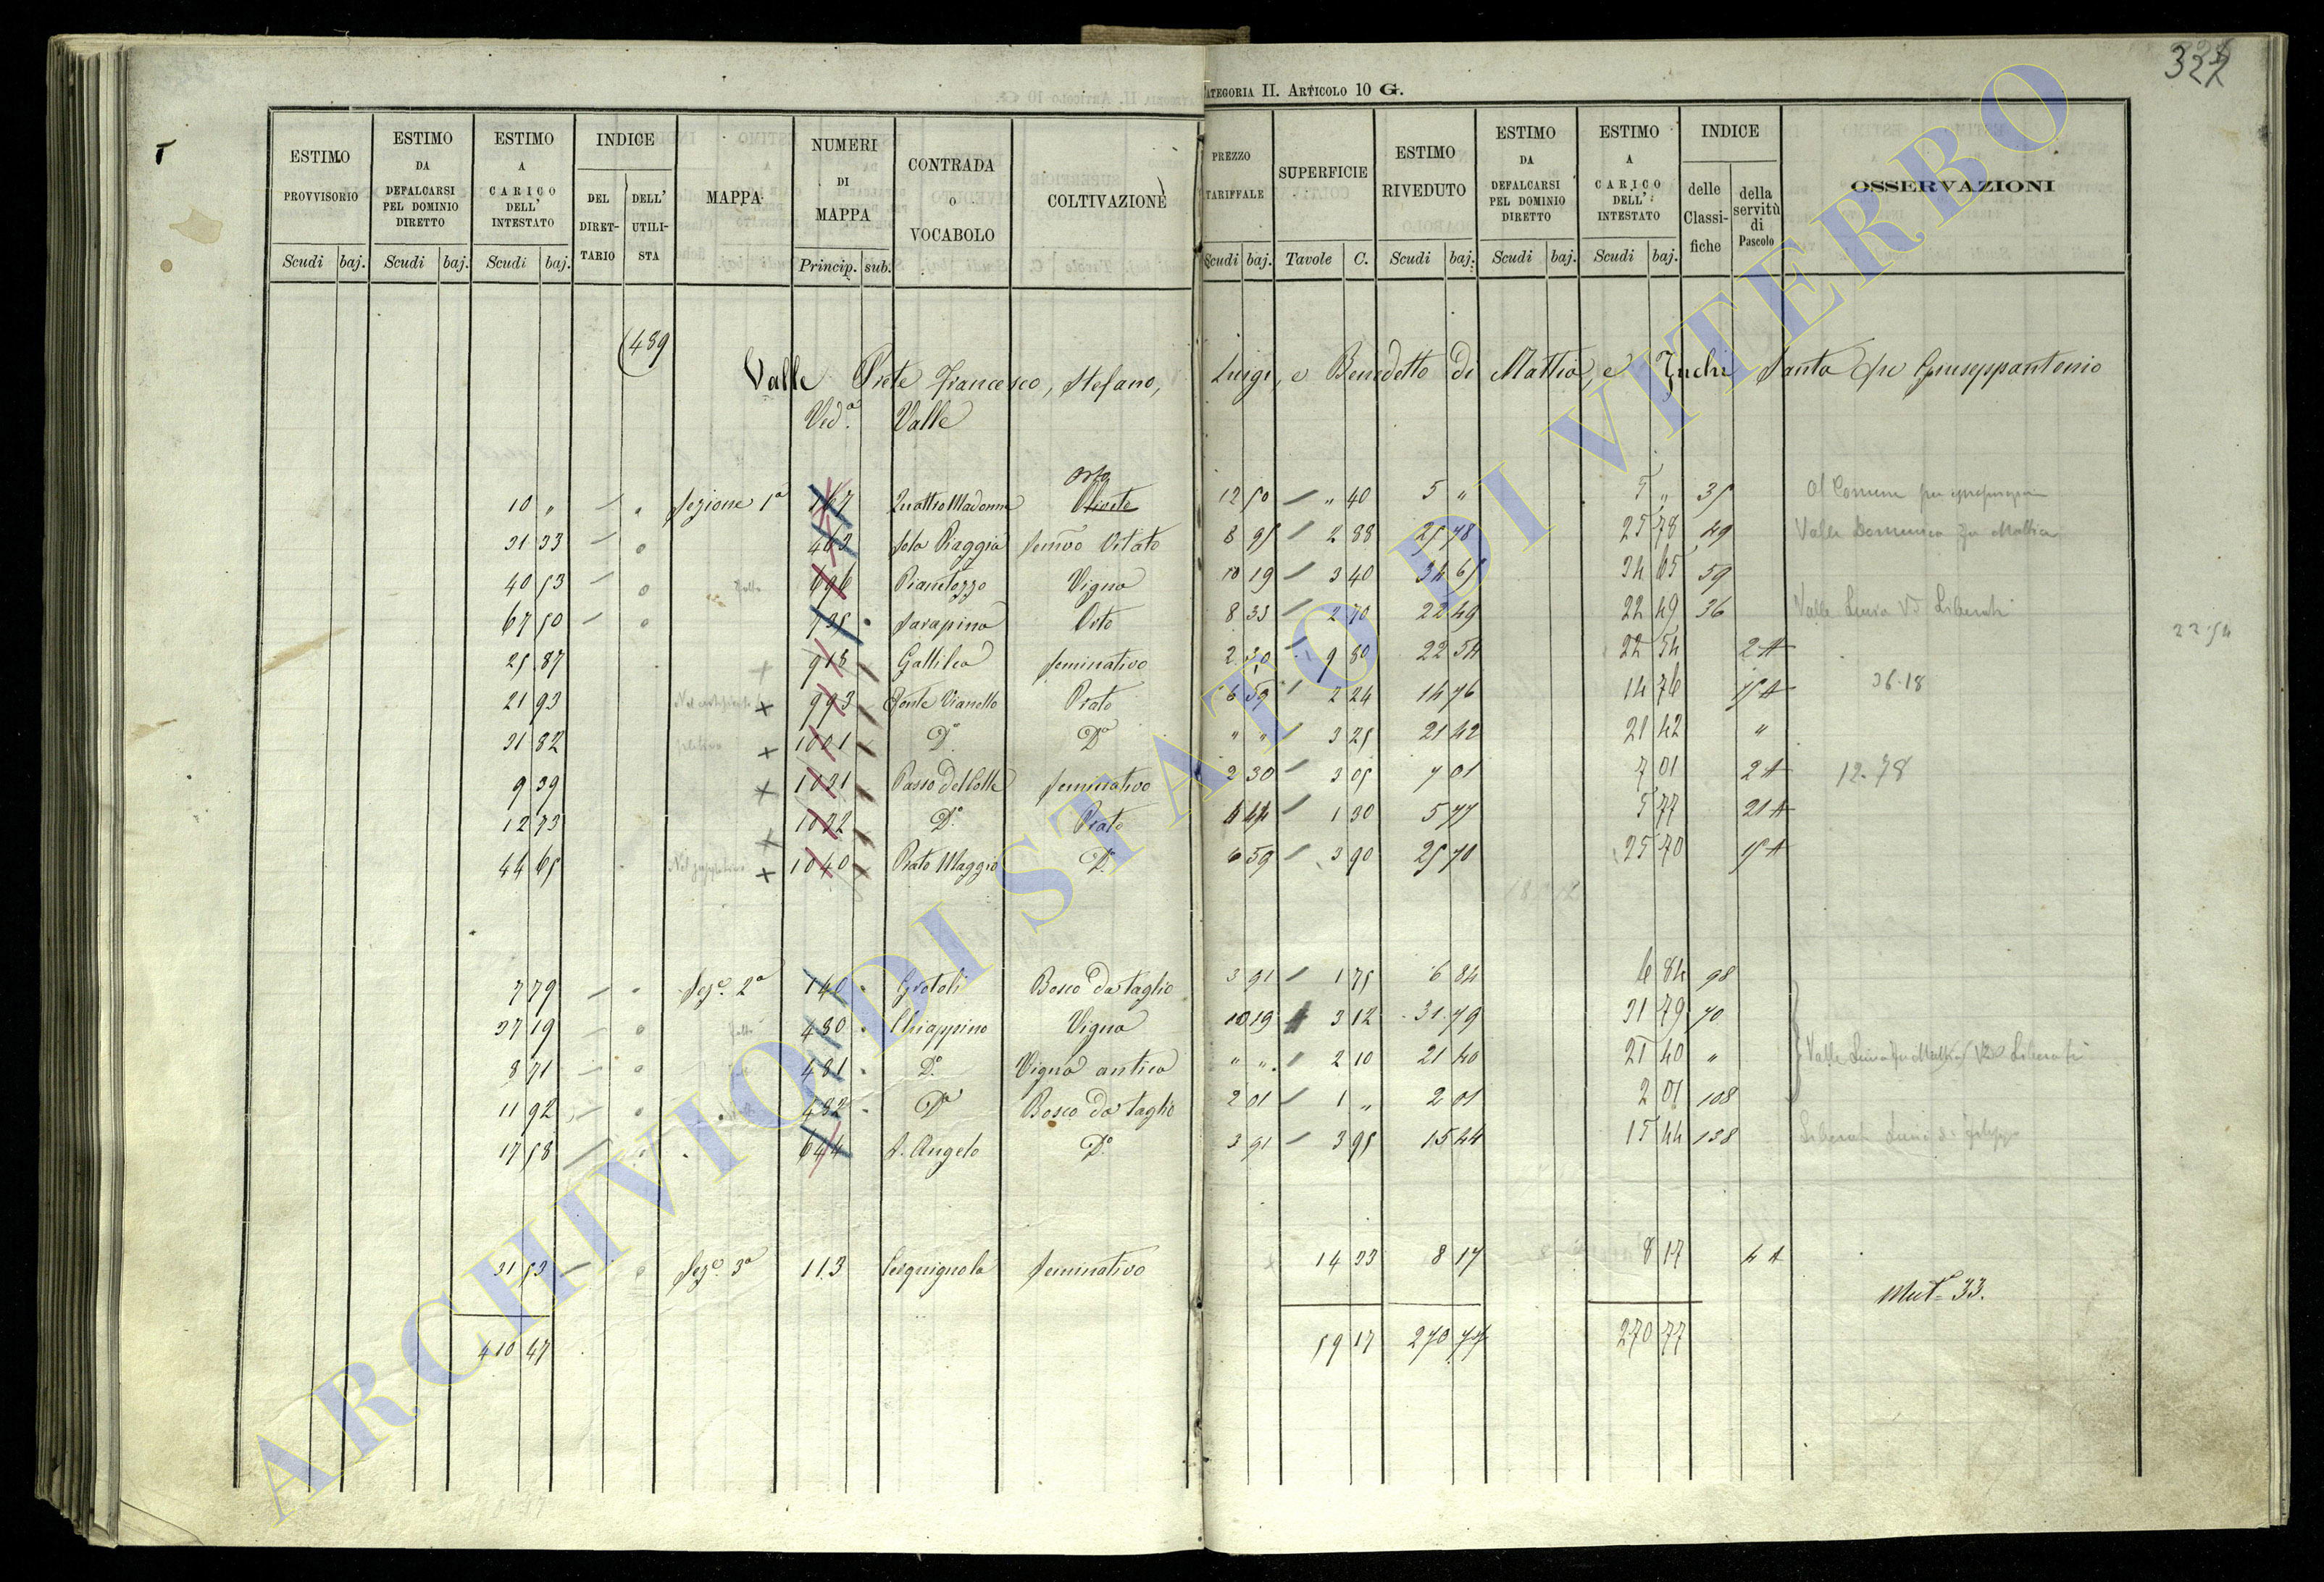 322
CATEGORIA II. ARTICOLO 10 G.
ESTIMO PROVVISORIO
ESTIMO DA DEFALCARSI PEL DOMINIO DIRETTO
ESTIMO A CARICO DELL' INTESTATO
INDICE
DEL DIRET-TARIO
DELL' UTILI-STA
MAPPA
NUMERI DI MAPPA
CONTRADA O VOCABOLO
COLTIVAZIONE
PREZZO TARIFFALE
SUPERFICIE
ESTIMO RIVEDUTO
ESTIMO DA DEFALCARSI PEL DOMINIO DIRETTO
ESTIMO A CARICO DELL' INTESTATO
INDICE
delle Classi-fiche
della servitù di Pascolo
OSSERVAZIONI
Scudi baj. Scudi baj. Scudi baj. Princip. sub. Scudi baj. Tavole C. Scudi baj. Scudi baj. Scudi baj.
489
Valle Prete Francesco, Stefano, Luigi, e Benedetto di Mattia, e Zuchi Santa fu Giuseppantonio
Ved.a Valle
orto
10 „ Sezione 1a 167 Quattro Madonne 12 50 „ 40 5 „ 5 „ 35 Al Comune per
31 33 463 Sola Piaggia Semvo Vitato 8 95 2 88 25 78 25 78 49 Valle Domenico fu Mattia
40 53 696 Pianetozzo Vigna 10 19 3 40 34 65 34 65 59
67 50 735 Sarapina Orto 8 33 2 70 22 49 22 49 36 Valle Luisa Vd Liberati
25 87 918 Gallilea Seminativo 2 30 9 80 22 54 22 54 2 A 22.54
21 93 993 Fonte Vianello Prato 6 59 2 24 14 76 14 76 15 A 36.18
31 82 1001 Do Do „ „ 3 25 21 42 21 42 „
9 39 1031 Passo del Colle Seminativo 2 30 3 05 7 01 7 01 2 A 12.78
12 73 1032 Do Prato 4 44 1 30 5 77 5 77 21 A
44 65 1040 Prato Maggio Do 6 59 3 90 25 70 25 70 15 A
7 79 Sezo. 2a 140 Grotoli Bosco da taglio 3 91 1 75 6 84 6 84 98
37 19 480 Chiappino Vigna 10 19 3 12 31 79 31 79 70
8 71 481 Do Vigna antica „ „ 2 10 21 40 21 40 „ Valle Luisa fu Mattia Vd Liberati
11 92 482 Do Bosco da taglio 2 01 1 „ 2 01 2 01 108
17 58 644 S. Angelo Do 3 91 3 95 15 44 15 44 138
31 53 Sezo. 3a 113 Cerquignola Seminativo 14 33 8 17 8 17 4 A
Muta 33.
410 47 59 17 270 77 270 77
ARCHIVIO DI STATO DI VITERBO